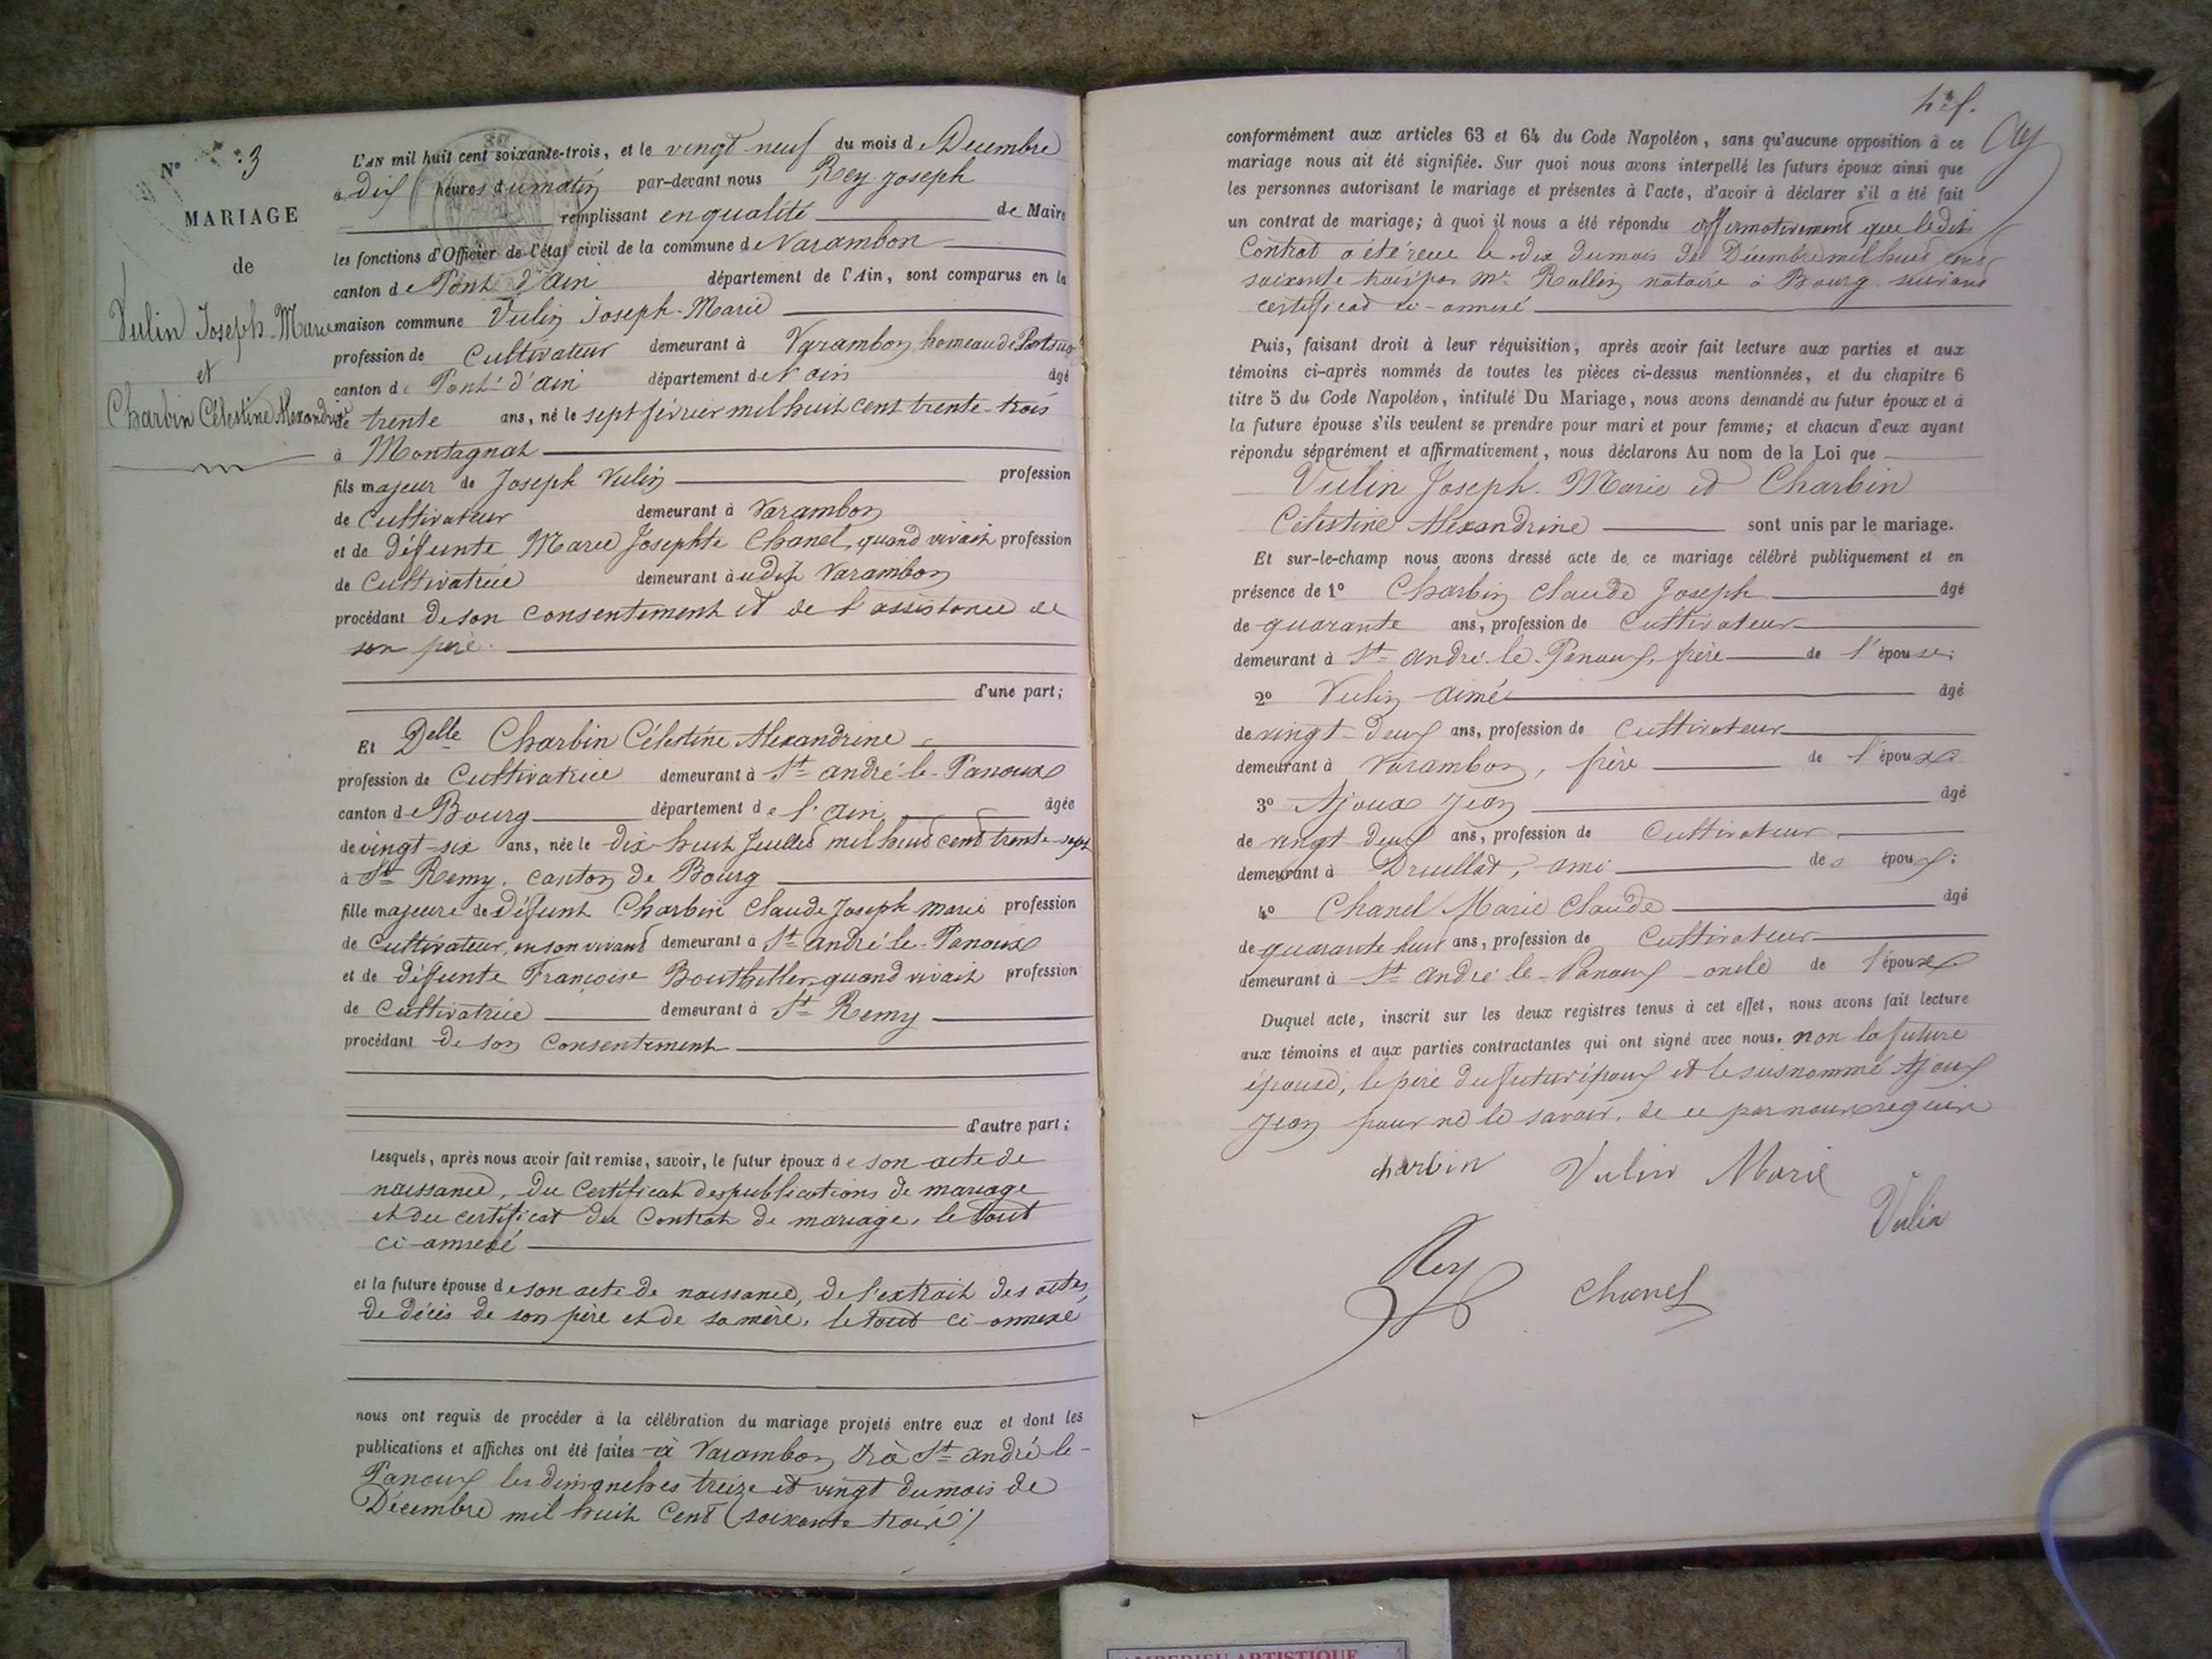 N° 3
MARIAGE
de
Vulin Joseph-Marie
et
Charbin Célestine Alexandrine
L'AN mil huit cent soixante-trois, et le vingt neuf du mois de Décembre
à dix heures du matin par-devant nous Rey Joseph
remplissant en qualité de Maire
les fonctions d'Officier de l'état civil de la commune de Varambon
canton de Pont d'Ain département de l'Ain, sont comparus en la
maison commune Vulin Joseph-Marie
profession de Cultivateur demeurant à Varambon, hameau de
canton de Pont-d'ain département de l'ain âgé
de trente ans, né le sept février mil huit cent trente-trois
à Montagnat
fils majeur de Joseph Vulin profession
de Cultivateur demeurant à Varambon
et de défunte Marie Josephte Chanel, quand vivait profession
de Cultivatrice demeurant audit Varambon
procédant de son consentement et de l'assistance de
son père.
d'une part;
Et Delle Charbin Célestine Alexandrine
profession de Cultivatrice demeurant à St André-le-Panoux
canton de Bourg département de l'ain âgée
de vingt-six ans, née le dix-huit Juillet mil huit cent trente-sept
à St Remy, canton de Bourg
fille majeure de défunt Charbin Claude Joseph Marie profession
de Cultivateur, en son vivant demeurant à St André-le-Panoux
et de défunte Françoise Bouthillon quand vivait profession
de Cultivatrice demeurant à St Remy
procédant de son consentement
d'autre part;
Lesquels, après nous avoir fait remise, savoir, le futur époux de son acte de
naissance, du certificat des publications de mariage
et du certificat du Contrat de mariage, le tout
ci-annexé
et la future épouse de son acte de naissance, de l'extrait des actes
de décès de son père et de sa mère, le tout ci-annexé
nous ont requis de procéder à la célébration du mariage projeté entre eux et dont les
publications et affiches ont été faites à Varambon et à St André-le-
Panoux les dimanches treize et vingt du mois de
Décembre mil huit cent soixante trois
4e f.
Rey
conformément aux articles 63 et 64 du Code Napoléon, sans qu'aucune opposition à ce
mariage nous ait été signifiée. Sur quoi nous avons interpellé les futurs époux ainsi que
les personnes autorisant le mariage et présentes à l'acte, d'avoir à déclarer s'il a été fait
un contrat de mariage; à quoi il nous a été répondu affirmativement que ledit
Contrat a été reçu le dix du mois de Décembre mil huit cent
soixante trois par Me Rollin notaire à Bourg suivant
certificat ci-annexé
Puis, faisant droit à leur réquisition, après avoir fait lecture aux parties et aux
témoins ci-après nommés de toutes les pièces ci-dessus mentionnées, et du chapitre 6
titre 5 du Code Napoléon, intitulé Du Mariage, nous avons demandé au futur époux et à
la future épouse s'ils veulent se prendre pour mari et pour femme; et chacun d'eux ayant
répondu séparément et affirmativement, nous déclarons Au nom de la Loi que
Vulin Joseph-Marie et Charbin
Célestine Alexandrine sont unis par le mariage.
Et sur-le-champ nous avons dressé acte de ce mariage célébré publiquement et en
présence de 1° Charbin Claude Joseph âgé
de quarante ans, profession de Cultivateur
demeurant à St André-le-Panoux, frère de l'épouse;
2° Vulin Aimé âgé
de vingt-deux ans, profession de Cultivateur
demeurant à Varambon, frère de l'époux
3° Ajoux Jean âgé
de vingt-deux ans, profession de Cultivateur
demeurant à Druillat, ami des époux;
4° Chanel Marie Claude âgé
de quarante huit ans, profession de Cultivateur
demeurant à St André-le-Panoux oncle de l'époux
Duquel acte, inscrit sur les deux registres tenus à cet effet, nous avons fait lecture
aux témoins et aux parties contractantes qui ont signé avec nous, non la future
épouse, le père du futur époux et le susnommé Ajoux
Jean pour ne le savoir, de ce par nous requis
charbin Vulin Marie
Vulin
Rey chanel
AMBERIEU ARTISTIQUE